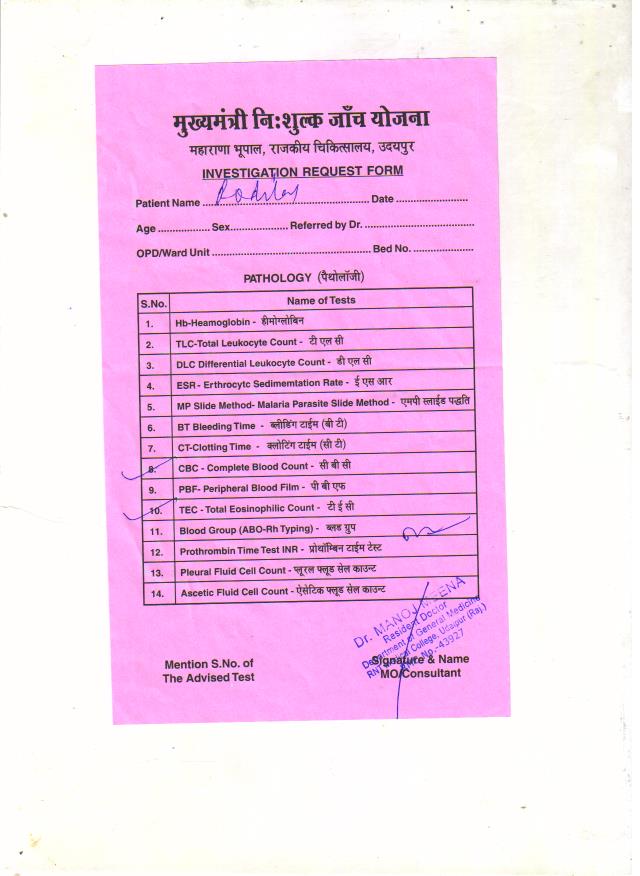 मुख्यमंत्री निःशुल्क जाँच योजना
महाराणा भूपाल, राजकीय चिकित्सालय, उदयपुर
INVESTIGATION REQUEST FORM
Patient Name ................................ Date ................
Age ............ Sex............ Referred by Dr. ................
OPD/Ward Unit ................................ Bed No. ............
PATHOLOGY (पैथोलॉजी)
S.No. Name of Tests
1. Hb-Heamoglobin - हीमोग्लोबिन
2. TLC-Total Leukocyte Count - टी एल सी
3. DLC Differential Leukocyte Count - डी एल सी
4. ESR - Erthrocytc Sedimemtation Rate - ई एस आर
5. MP Slide Method- Malaria Parasite Slide Method - एमपी स्लाईड पद्धति
6. BT Bleeding Time - ब्लीडिंग टाईम (बी टी)
7. CT-Clotting Time - क्लोटिंग टाईम (सी टी)
8. CBC - Complete Blood Count - सी बी सी
9. PBF- Peripheral Blood Film - पी बी एफ
10. TEC - Total Eosinophilic Count - टी ई सी
11. Blood Group (ABO-Rh Typing) - ब्लड ग्रुप
12. Prothrombin Time Test INR - प्रोथॉम्बिन टाईम टेस्ट
13. Pleural Fluid Cell Count - प्लूरल फ्लूड सेल काउन्ट
14. Ascetic Fluid Cell Count - ऐसेटिक फ्लूड सेल काउन्ट
Dr. MANOJ MEENA
Resident Doctor
Department of General Medicine
RNT Medical College, Udaipur (Raj.)
No.-43927
Mention S.No. of
The Advised Test
Signature & Name
MO/Consultant